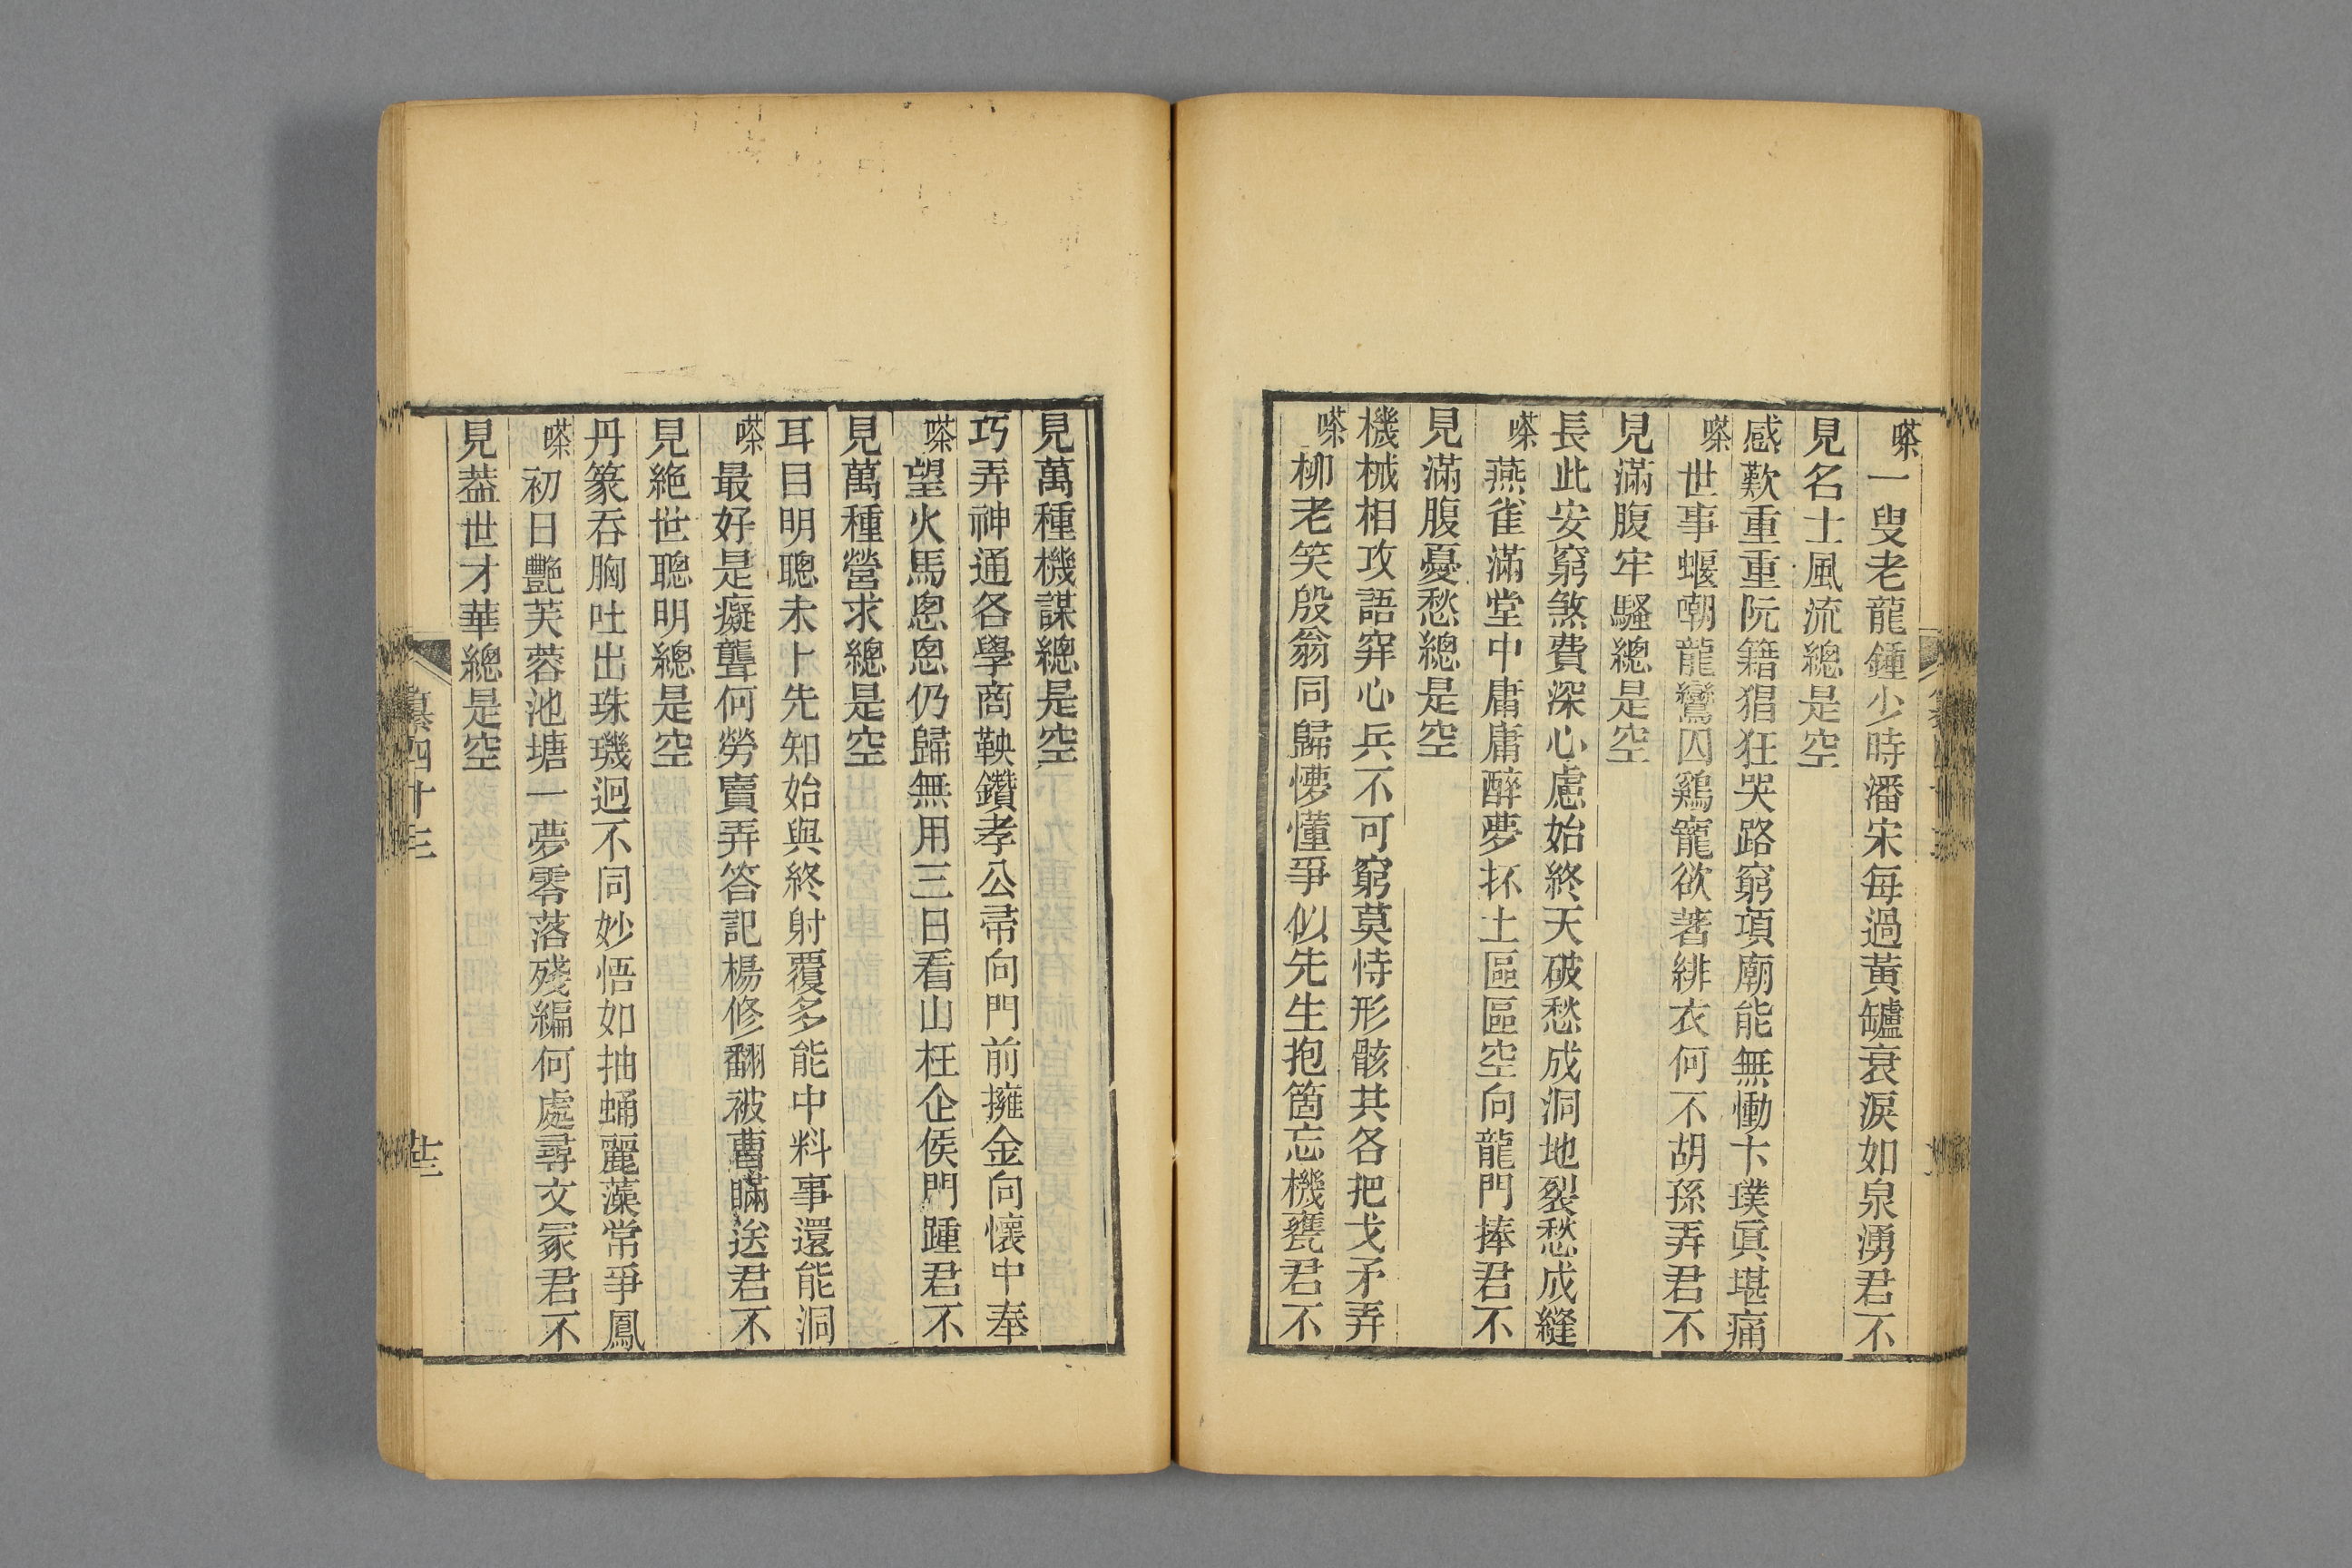 嗏一叟老龍鍾少時潘宋每過黃罏衰淚如泉湧君不
見名士風流總是空
感歎重重阮籍猖狂哭路窮項廟能無慟卞璞眞堪痛
嗏世事蝘嘲龍鸞囚鷄寵欲著緋衣何不胡孫弄君不
見滿腹牢騷總是空
長此安窮煞費深心慮始終天破愁成洞地裂愁成縫
嗏燕雀滿堂中庸庸醉夢抔土區區空向龍門捧君不
見滿腹憂愁總是空
機械相攻語穽心兵不可窮莫恃形骸共各把戈矛弄
嗏柳老笑殷翁同歸懜懂爭似先生抱箇忘機甕君不
見萬種機謀總是空
巧弄神通各學商鞅鑽孝公帚向門前擁金向懷中奉
嗏望火馬悤悤仍歸無用三日看山枉企侯門踵君不
見萬種營求總是空
耳目明聰未卜先知始與終射覆多能中料事還能洞
嗏最好是癡聾何勞賣弄答記楊修翻被曹瞞送君不
見絶世聰明總是空
丹篆吞胸吐出珠璣迥不同妙悟如抽蛹麗藻常爭鳳
嗏初日艷芙蓉池塘一夢零落殘編何處尋文冢君不
見葢世才華總是空
纂四十三